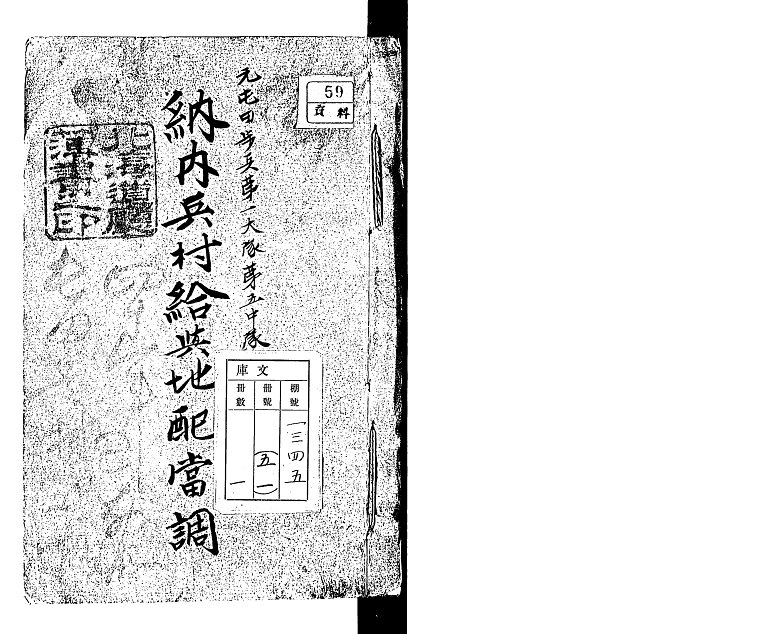 59
資料
元屯田歩兵第一大隊第五中隊
納内兵村給與地配當調
北海道廳
文庫
棚號
一三四五
冊號
(五一)
冊數
一